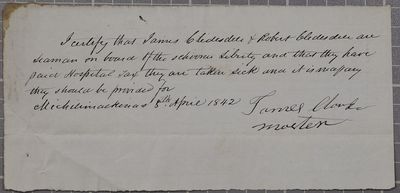 I certify that James Clydesdale & Robert Clydesdale are
seaman on board of the schooner Liberty and that they have
paid Hospital Tax they are taken sick and it is necessary
they should be provided for
Michilimackinac 8th April 1842
James
Master